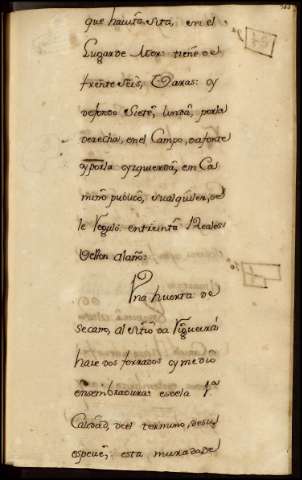 que havita Sita, en el
Lugar de Mor: tiene de
frente seis, Varas: y
de fondo Siete, lunda, por la
derecha, en el Campo, da fonte
y por la yzquierda, em Ca
mino publico, su alquiler, de
le Regulo. en treinta Reales
Vellon al año:
Una huerta de
Secano, al sitio da figueira
haze dos ferrados y medio
ensembradura: es de la 1ª
Calidad, del termino, de su
espeue, esta murada de